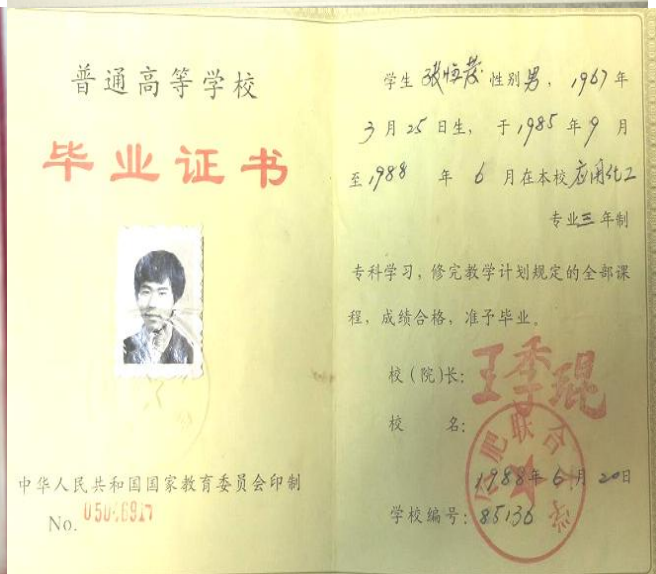 普通高等学校
毕业证书
中华人民共和国国家教育委员会印制
No.
学生 张恒茂 性别 男，1967年
3月25日生，于1985年9月
至1988年6月在本校应用化工
专业三年制
专科学习，修完教学计划规定的全部课
程，成绩合格，准予毕业。
校（院）长：王季琨
校名：
合肥联合大学
1988年6月20日
学校编号：85136